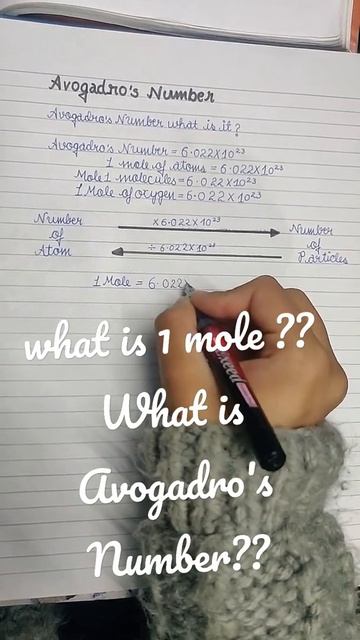 Avogadro's Number
Avogadro's Number what is it?
Avogadro's Number = 6.022X10²³
1 mole of atoms = 6.022X10²³
Mole 1 molecules = 6.022X10²³
1 Mole of oxygen = 6.022 X 10²³
Number of Atom
X 6.022X10²³
÷ 6.022X10²³
Number of Particles
1 Mole = 6.022
what is 1 mole ??
What is
Avogadro's
Number??